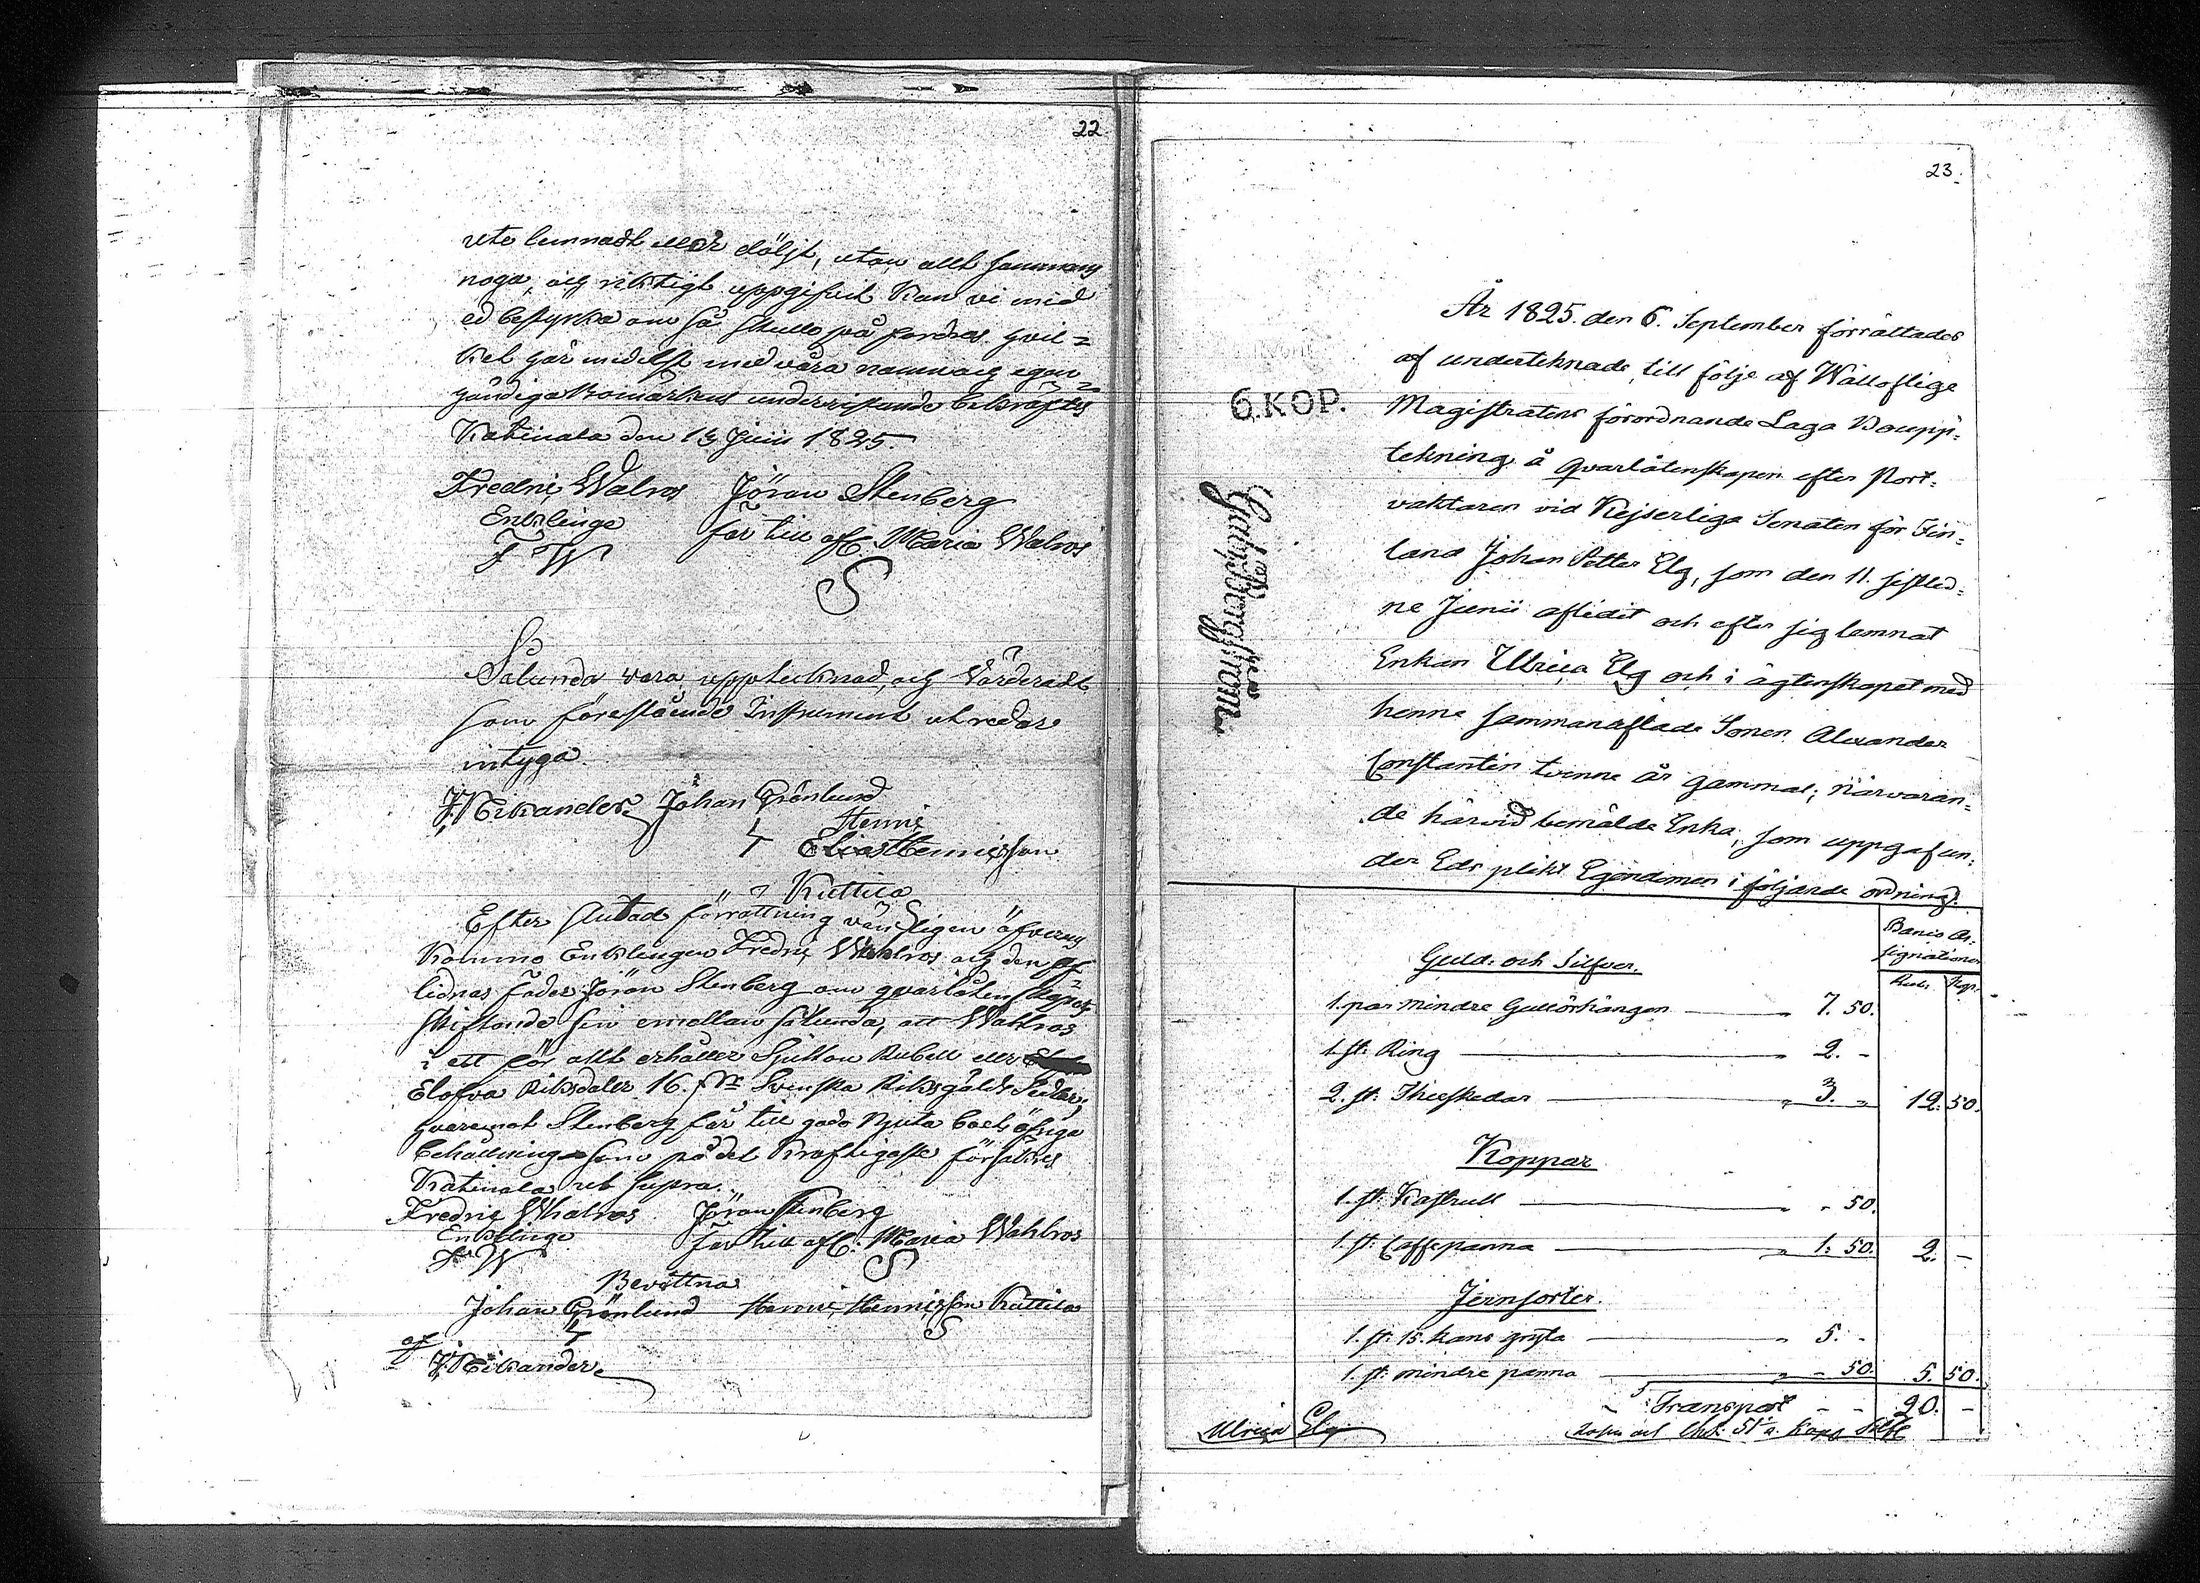 22
ute lemnadt eller döljt, utan allt sammans
noga, och riktigt uppgifvit kan vi med
ed bestyrka om så skulle på fordras hvil=
ket här medelst med våra namn och egen
händiga bomärken underskrifvande bekräftas
Katinala den 13 Junii 1825.
Fredric Walros Jöran Stenberg
Enklinge far till afl. Maria Walros
F W S
Sålunda vara upptecknad, och Värderadt
som föreståénde Instrument utredar
intyga
J. Nikander Johan Grönlund
Henric
Elias Henricsson
Kuttila
Efter slutad förrättning vänligen öfverens
kommo Enklingen Fredric Wahlros och den af
lidnas fader Jöran Stenberg om qvarlåtenskapens
skiftande sin emellan sålunda, att Wahlros
i ett för allt erhåller Sjutton Rubel eller
Elofva Riksdaler 16. Svenska Riksgälds Sedlar,
hvaremot Stenberg får till godo njuta boets öfriga
behållning som på det kraftigaste försäkras
Katinala ut supra.
Fredric Whalros Jöran Stenberg
Enklinge far till afl. Maria Wahlros
F W S
Bevittna
Johan Grönlund Henric Henricsson Kuttila
S
af
J. Nikander
23.
År 1825. den 6. September förrättades
af undertecknade, till följe af Wälloflige
6.KOP. Magistratens förordnande Laga Boupp=
tekning å qvarlåtenskapen efter Port=
vaktaren vid Kejserliga Senaten för Fin=
land Johan Petter Elg, som den 11. sistled=
ne Junii aflidit och efter sig lemnat
Enkan Ulrica Elg och i ägtenskapet med
henne sammanaflade Sonen Alexander
Constantin tvenne år gammal; närvaran=
de härvid bemälde Enka, som uppgaf un=
der Eds plikt Egendomen i följande ordning.
Banco As=
signationer
Rub. Kop.
Guld. och Silfver.
1. par mindre Gullörhängen 7. 50.
1. st: Ring " 2. -
2. st: Theeskedar " 3. " 12. 50.
Koppar
1. st: Kastrull " - 50.
1. st: Caffepanna " 1. 50. 2. -
Jernsorter.
1. st: 15. kans gryta " 5. -
1. st: mindre panna " - 50. 5. 50.
Transport - - 20. -
Ulrica Elg